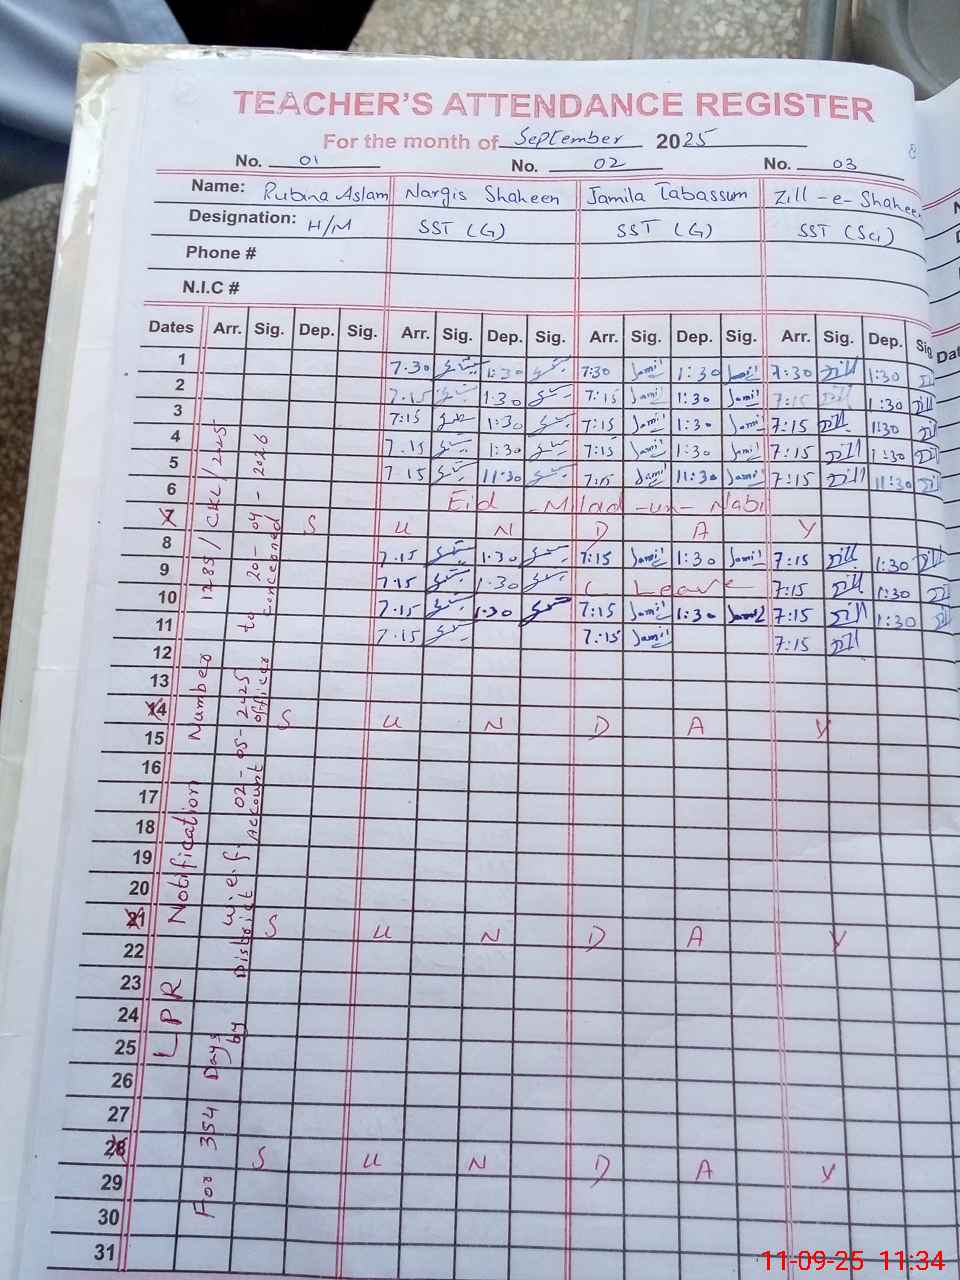 TEACHER'S ATTENDANCE REGISTER
For the month of September 2025
No. 01 No. 02 No. 03
Name: Rubina Aslam Nargis Shaheen Jamila Tabassum Zill-e-Shaheen
Designation: H/M SST (G) SST (G) SST (Sci)
Phone #
N.I.C #
Dates Arr. Sig. Dep. Sig. Arr. Sig. Dep. Sig. Arr. Sig. Dep. Sig. Arr. Sig. Dep. Sig
1 7.30 1:30 7:30 Jamil 1:30 Jamil 7:30 Zill 1:30 Zill
2 7.15 1:30 7:15 Jamil 1:30 Jamil 7:15 Zill 1:30 Zill
3 7:15 1:30 7:15 Jamil 1:30 Jamil 7:15 Zill 1:30 Zill
4 7.15 1:30 7:15 Jamil 1:30 Jamil 7:15 Zill 1:30 Zill
5 7.15 11:30 7:15 Jamil 11:30 Jamil 7:15 Zill 11:30 Zill
6 Eid -Milad-un-Nabi
7 S U N D A Y
8 7.15 1:30 7:15 Jamil 1:30 Jamil 7:15 Zill 1:30 Zill
9 7:15 1:30 C Leave 7:15 Zill 1:30 Zill
10 7.15 1:30 7:15 Jamil 1:30 Jamil 7:15 Zill 1:30 Zill
11 7.15 7:15 Jamil 7:15 Zill
12
13
14 S U N D A Y
15
16
17
18
19
20
21 S U N D A Y
22
23
24
25
26
27
28 S U N D A Y
29
30
31
LPR Notification Number 1285/CKL/2025
For 354 Days w.e.f. 02-05-2025 to 20-04-2026
by District Account Officer concerned
11-09-25 11:34